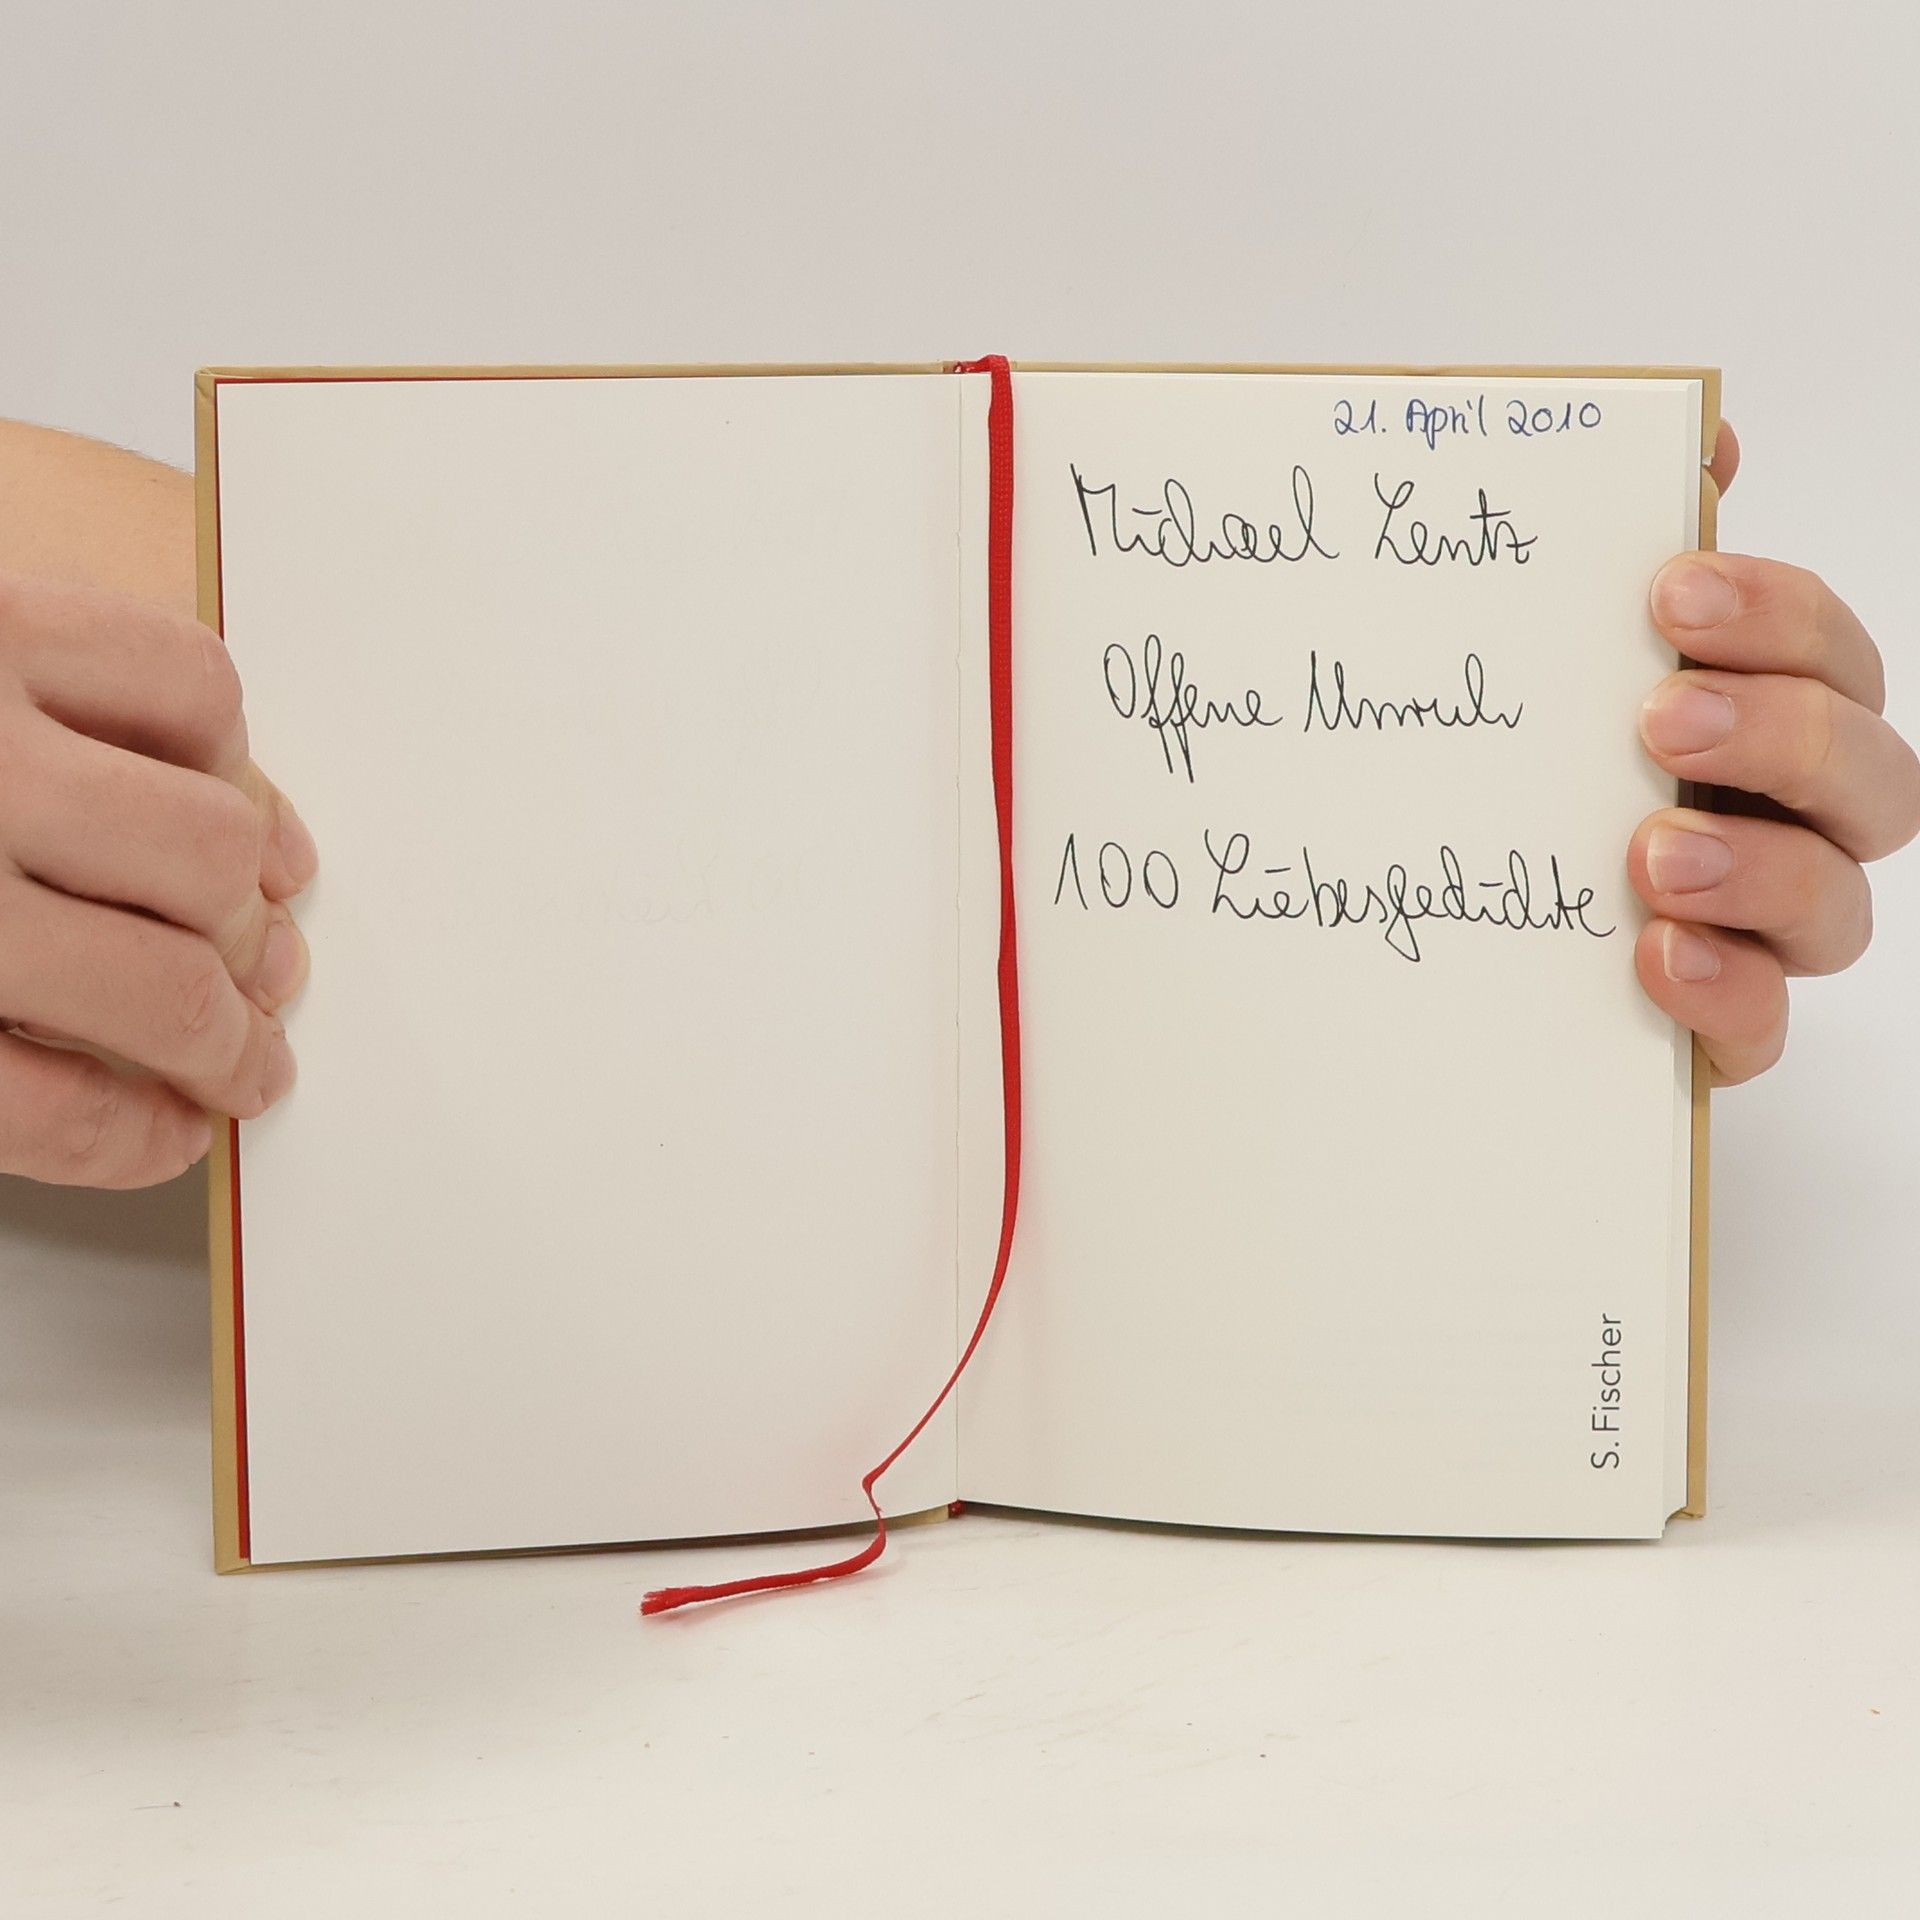 21. April 2010
Michael Lentz
Offene Unruh
100 Liebesgedichte
S. Fischer